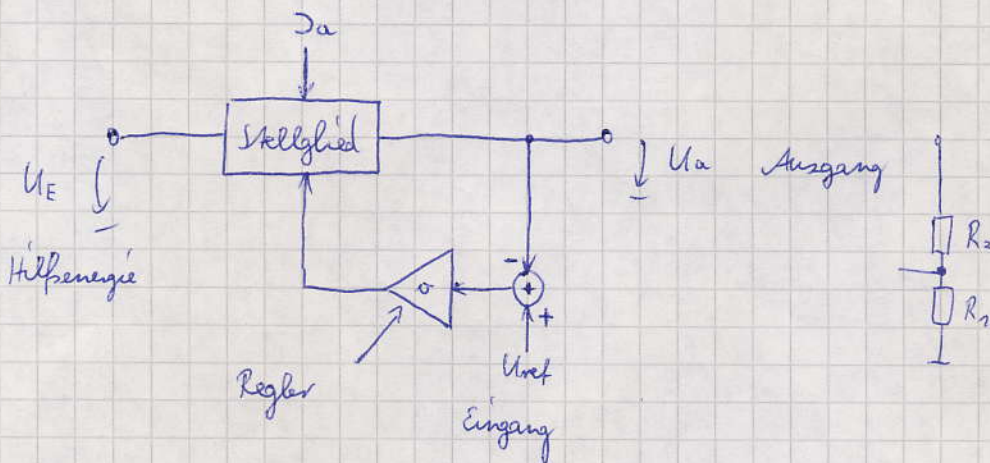 Ja
Stellglied
UE
Hilfsenergie
Ua
Ausgang
R2
-
+
+
σ
R1
Uref
Regler
Eingang